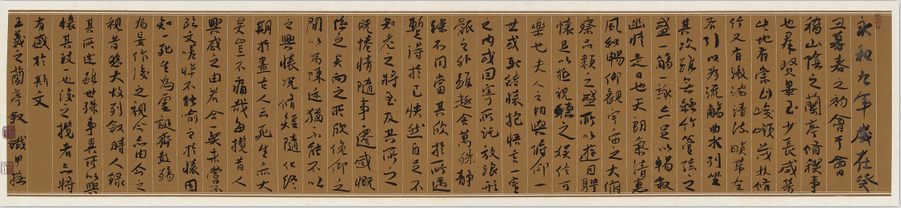 永和九年歲在癸
丑暮春之初會于會
稽山陰之蘭亭脩稧事
也羣賢畢至少長咸集
此地有崇山峻嶺茂林脩
竹又有激流清湍映帶左
右引以為流觴曲水列坐
其次雖無絲竹管弦之
盛一觴一詠亦足以暢敘
幽情是日也天朗氣清惠
風和暢仰觀宇宙之大俯
察品類之盛所以遊目騁
懷足以極視聽之娛信可
樂也夫人之相與俯仰一
世或取諸懷抱悟言一室
之內或因寄所託放浪形
骸之外雖趣舍萬殊靜
躁不同當其欣於所遇
暫得於己快然自足不
知老之將至及其所之
既惓情隨事遷感慨
係之矣向之所欣俛仰之
間以為陳迹猶不能不以
之興懷況脩短隨化終
期於盡古人云死生亦大
矣豈不痛哉每攬昔人
興感之由若合一契未嘗不
臨文嗟悼不能喻之於懷固
知一死生為虛誕齊彭殤
為妄作後之視今亦由今之
視昔悲夫故列敘時人錄
其所述雖世殊事異所以興
懷其致一也後之攬者亦將
有感於斯文
王羲之蘭亭敘